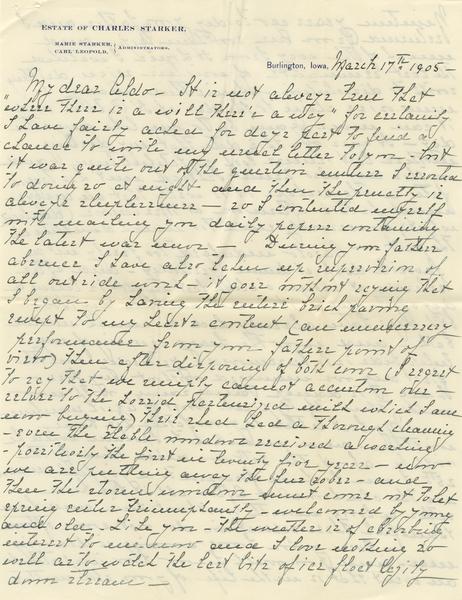 ESTATE OF CHARLES STARKER.
MARIE STARKER,
CARL LEOPOLD,
ADMINISTRATORS.
Burlington, Iowa, March 17th 1905 —
My dear Aldo — It is not always true that
"where there is a will there's a way" for certainly
I have fairly ached for days past to find a
chance to write my usual letter to you — but
it was quite out of the question unless I resorted
to doing so at night and then the penalty is
always sleeplessness — so I contented myself
with mailing you daily papers containing
the latest war news — During your father's
absence I have also taken up supervision of
all outside work — it goes without saying that
I began by having the entire brick paving
swept to my heart's content (an unnecessary
performance from your father's point of
view) then after disposing of both cows (I regret
to say that we simply cannot accustom our
selves to the horrid pasteurized milk which I am
now buying) their shed had a thorough cleaning
— even the stable windows received a washing
— possibly the first in twenty five years — now
we are putting away the fur robes — and
then the storm windows must come out to let
spring enter triumphantly — welcomed by young
and old. Like you — the weather is of absorbing
interest to me now and I love nothing so
well as to watch the last bits of ice float
down stream —